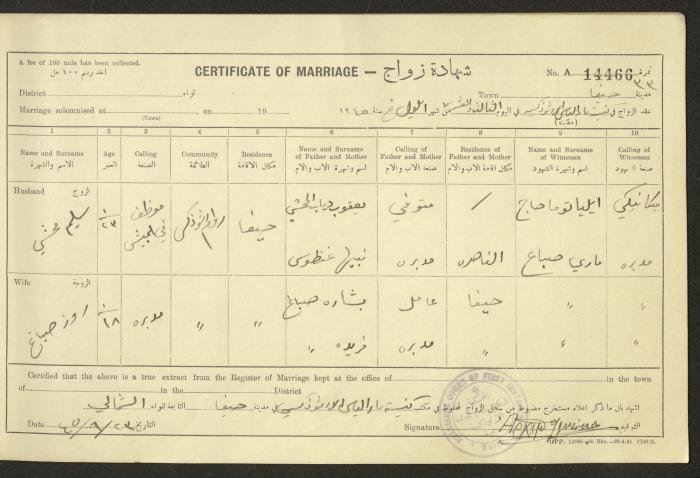 A fee of 100 mils has been collected.
اخذ رسم ١٠٠ مل
CERTIFICATE OF MARRIAGE — شهادة زواج
No. A 14466 نمرة
٣٣
District لواء Town حيفا مدينة
Marriage solemnised at , on 19
(Town)
عقد الزواج في كنيسة مار الياس الارثوذكسية في اليوم الثالث والعشرين من شهر ايلول سنة ١٩٤٥
(مدينة)
1 2 3 4 5 6 7 8 9 10
Name and Surname الاسم والشهرة
Age العمر
Calling الصنعة
Community الطائفة
Residence مكان الاقامة
Name and Surname of Father and Mother اسم وشهرة الاب والام
Calling of Father and Mother صنعة الاب والام
Residence of Father and Mother مكان اقامة الاب والام
Name and Surname of Witnesses اسم وشهرة الشهود
Calling of Witnesses صنعة الشهود
Husband الزوج
سليم
٢٣
موظف في الجيش
روم ارثوذكس
حيفا
يعقوب دياب
متوفي
/
ايليا توما حاج
ميكانيكي
نبيها غنطوس
مدبره
الناصره
ماري صباغ
مدبره
Wife الزوجة
روز صباغ
١٨
مدبره
"
"
بشاره صباغ
عامل
حيفا
"
"
فريده "
مدبره
"
"
"
Certified that the above is a true extract from the Register of Marriage kept at the office of in the town
of in the District
اشهد بان ما ذكر اعلاه مستخرج مضبوط من سجل الزواج المحفوظ في مكتب كنيسة مار الياس الارثوذكسية في مدينة حيفا التابعة للواء الشمالي
Date ٤٥/٩/٢٣ التاريخ
Signature التوقيع